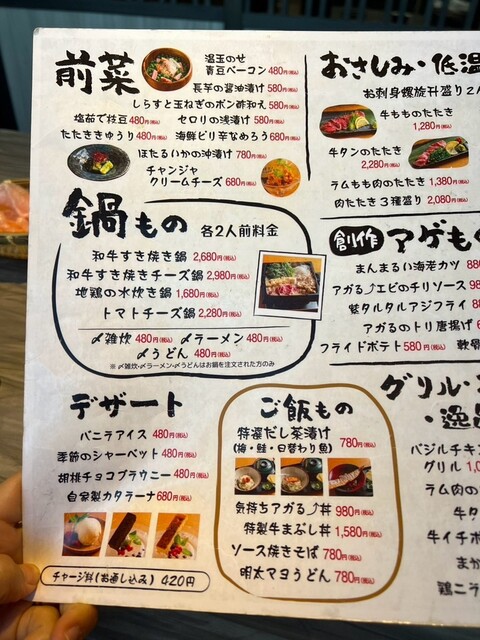 前菜
温玉のせ
青豆ベーコン 480円(税込)
長芋の醤油漬け 580円(税込)
しらすと玉ねぎのポン酢和え 580円(税込)
塩茹で枝豆 480円(税込) セロリの浅漬け 580円(税込)
たたききゅうり 480円(税込) 海鮮ピリ辛なめろう 680円(税込)
ほたるいかの沖漬け 780円(税込)
チャンジャ
クリームチーズ 680円(税込)
鍋もの 各2人前料金
和牛すき焼き鍋 2,680円(税込)
和牛すき焼きチーズ鍋 2,980円(税込)
地鶏の水炊き鍋 1,680円(税込)
トマトチーズ鍋 2,280円(税込)
〆雑炊 480円(税込) 〆ラーメン 480円(税込)
〆うどん 480円(税込)
※〆雑炊・〆ラーメン・〆うどんはお鍋を注文された方のみ
デザート
バニラアイス 480円(税込)
季節のシャーベット 480円(税込)
胡桃チョコブラウニー 480円(税込)
自家製カタラーナ 680円(税込)
チャージ料(お通し込み) 420円
ご飯もの
特選だし茶漬け
(梅・鮭・日替わり魚) 780円(税込)
気持ちアガる⤴丼 980円(税込)
特製牛まぶし丼 1,580円(税込)
ソース焼きそば 780円(税込)
明太マヨうどん 780円(税込)
おさしみ・低温
お刺身螺旋升盛り2人
牛もものたたき
1,280円(税込)
牛タンのたたき
2,280円(税込)
ラムもも肉のたたき 1,380円(税込)
肉たたき3種盛り 2,080円(税込)
創作 アゲも
まんまるい海老カツ 88
アガる⤴エビのチリソース 98
紫タルタルアジフライ 88
アガるのトリ唐揚げ 6
フライドポテト 580円(税込) 軟骨
グリル・
・逸品
バジルチキン
グリル 1,0
ラム肉の
牛タ
牛イチボ
まか
鶏ニラ